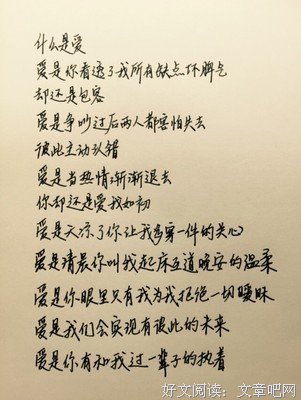 什么是爱
爱是你看透了我所有缺点坏脾气
却还是包容
爱是争吵过后两人都害怕失去
彼此主动认错
爱是当热情渐渐退去
你却还是爱我如初
爱是天凉了你让我多穿一件的关心
爱是清晨你叫我起床互道晚安的温柔
爱是你眼里只有我为我拒绝一切暧昧
爱是我们会实现有彼此的未来
爱是你有和我过一辈子的执着
好文阅读：文章吧网